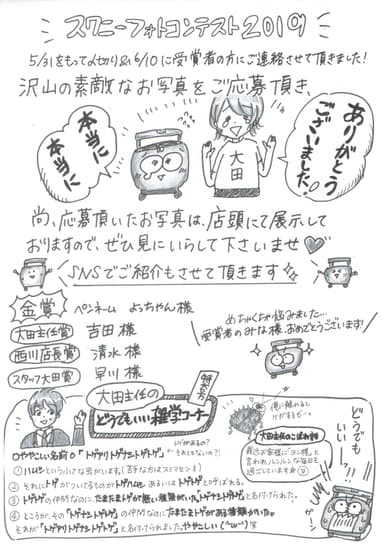 スワニーフォトコンテスト2019
5/31をもって〆切り&6/10に受賞者の方にご連絡させて頂きました!
沢山の素敵なお写真をご応募頂き、
本当に
本当に
ありがとう
ございました!
大田
尚、応募頂いたお写真は、店頭にて展示して
おりますので、ぜひ見にいらして下さいませ♡
SNSでご紹介もさせて頂きます
金賞 ペンネーム よっちゃん様
大田主任賞 吉田様
西川店長賞 清水様
スタッフ大田賞 早川様
めちゃくちゃ悩みました…
受賞者のみな様、おめでとうございます!
大田主任の
どうでもいい雑学コーナー
トゲがあるの?
それともないの?!
○ややこしい名前の「トゲアリトゲナシトゲトゲ」
① ハムシという小さな虫がいます。(苦手な方はスミマセン)
② それにトゲがついてるものがトゲハムシ あるいはトゲトゲと呼ばれる。
③ トゲトゲの仲間なのに、たまたまトゲが無い種類がいた。「トゲナシトゲトゲ」と名付けられた。
④ ところが、その「トゲナシトゲトゲ」の仲間なのに、たまたまトゲがある種類がいた。
それが「トゲアリトゲナシトゲトゲ」と名付けられました。ややこしい(^ω^)
俺に触れると
ケガするぜ…
大田主任のこぼれ話
どうでも
いい…!!
ガーン